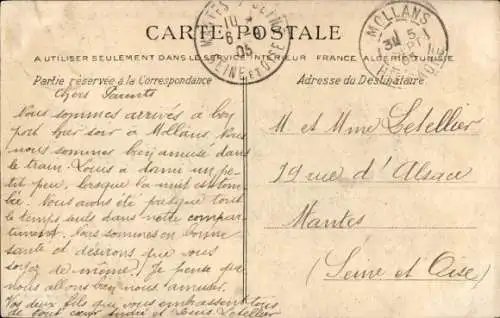 CARTE POSTALE
A UTILISER SEULEMENT DANS LE SERVICE INTÉRIEUR FRANCE ALGÉRIE TUNISIE
Partie réservée à la Correspondance
Adresse du Destinataire
MANTES
SEINE ET OISE
10
6
05
MOLLANS
5
Chers Parents
Nous sommes arrivés à bon
port hier soir à Mollans. Nous
nous sommes bien amusé dans
le train. Louis a dormi un pe-
tit peu, lorsque la nuit est tom-
bée. Nous avons été presque tout
le temps seuls dans notre compar-
timent. Nous sommes en bonne
santé et désirons que vous
soyez de même. Je pense que
nous allons bien nous amuser.
Vos deux fils que vous embrassent tous
de tout cœur André et Louis Letellier
M et Mme Letellier
19 rue d'Alsace
Mantes
(Seine et Oise)